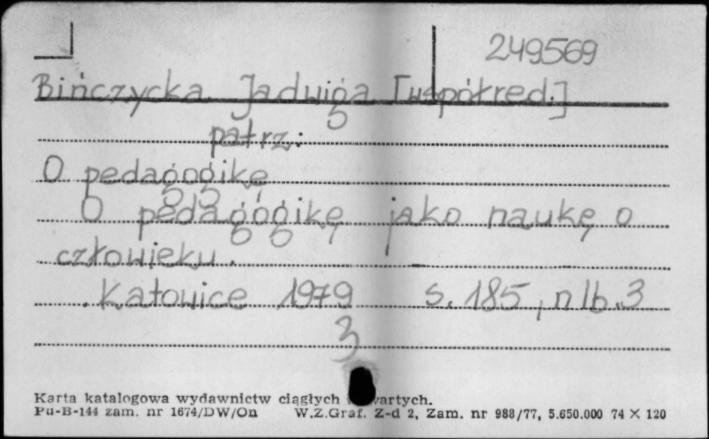 249569
Bińczycka Jadwiga [współred.]
patrz:
O pedagogikę
O pedagogikę jako naukę o
człowieku.
Katowice 1979 s. 185, nlb. 3
3
Karta katalogowa wydawnictw ciągłych zwartych.
Pu-B-144 zam. nr 1674/DW/On W.Z.Graf. Z-d 2, Zam. nr 988/77, 5.650.000 74 X 120